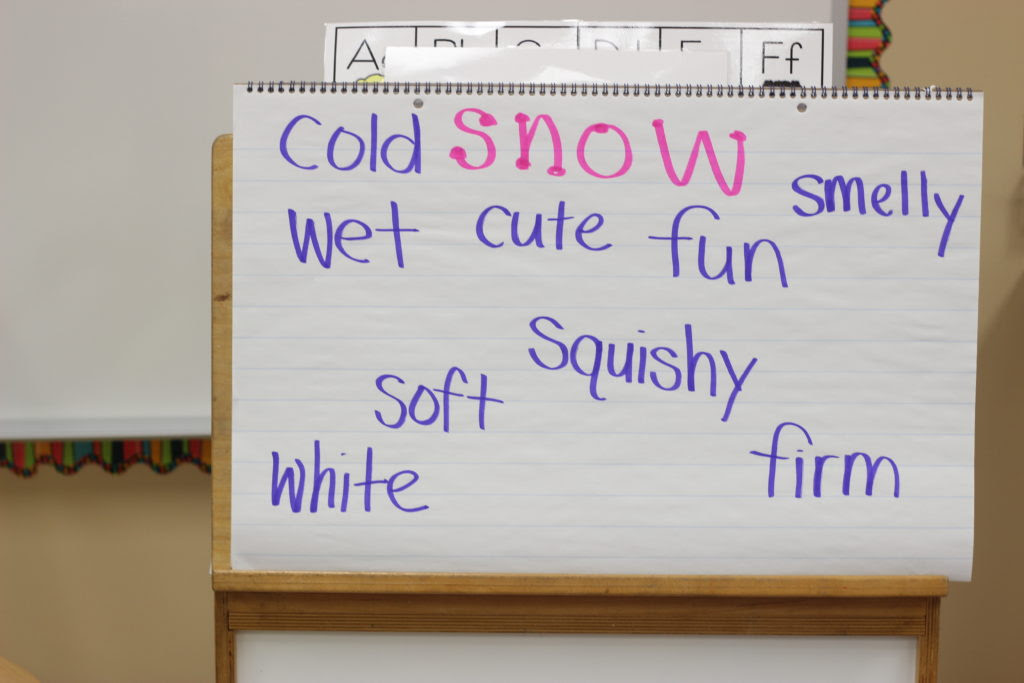 Ff
cold snow
smelly
wet cute fun
squishy
soft
white
firm